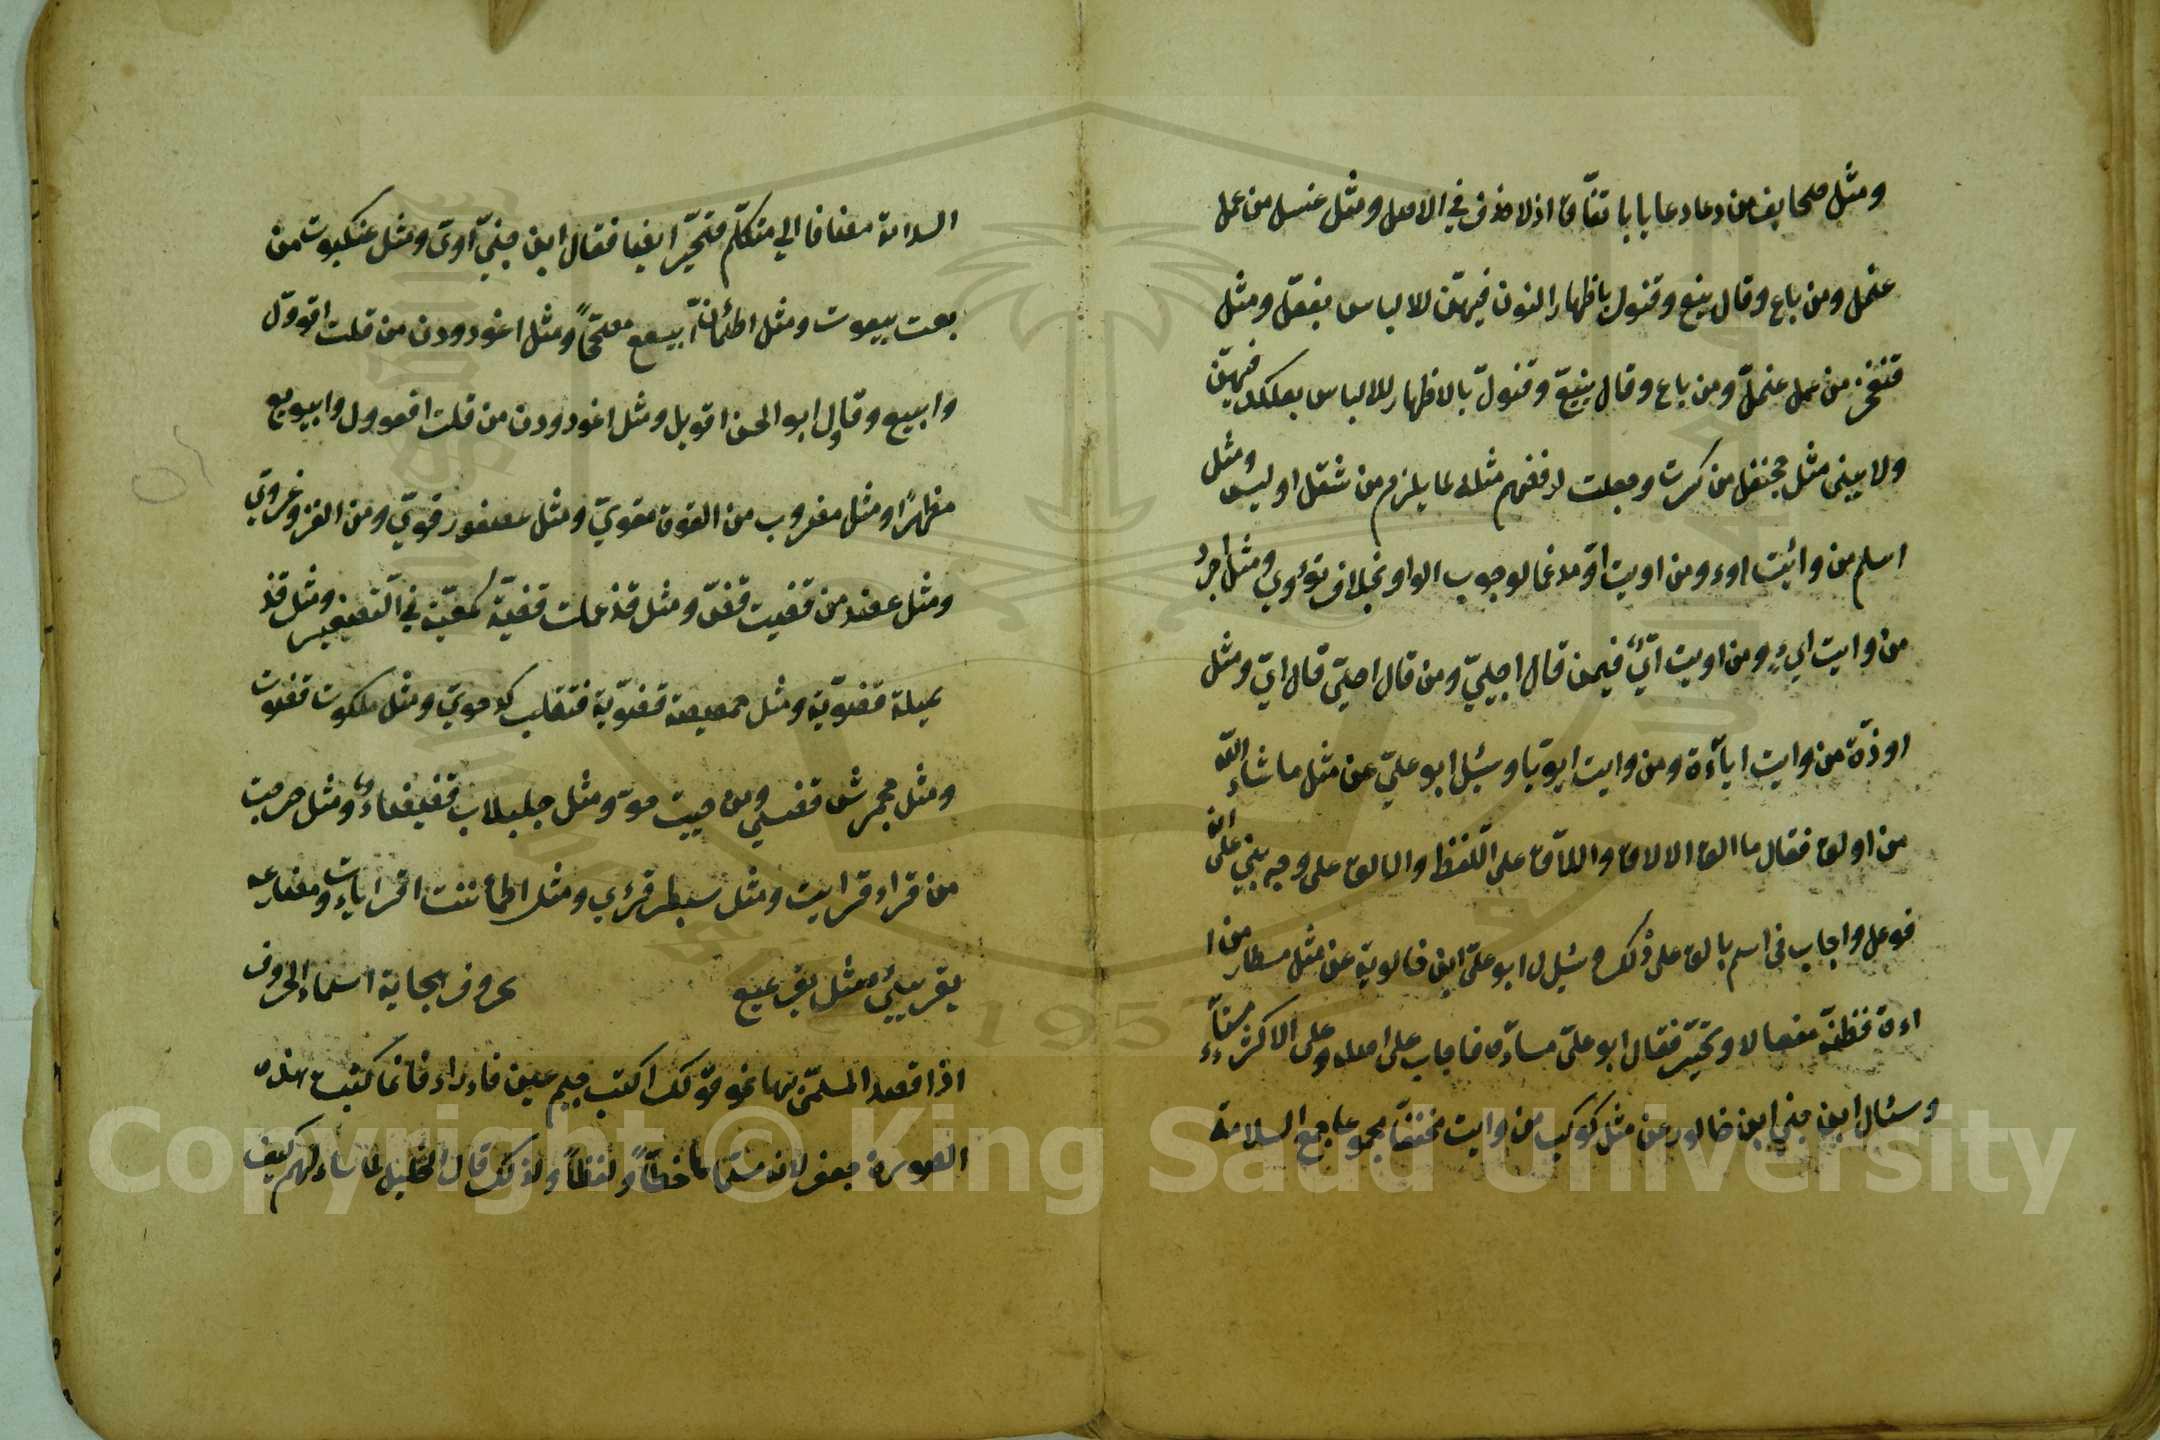 ومثل صحايف من دعا دعايا باتفاق اذ لا حذف في الاصل ومثل عنسل من عمل
عنمل ومن باع وقال بنيع وقنول باظهار النون فيهن للالباس بفعل ومثل
قنفخر من عمل عنمل ومن باع وقال بنيع وقنول بالاظهار للالباس بعلكد فيهن
ولا يبنى مثل جحنفل من كسرت وجعلت لرفضهم مثله لما يلزم من ثقل او لبس ومثل
ابلم من وايت اوء ومن اويت او مدغما لوجوب الواو بخلاف تؤوي ومثل اجرد
من وايت ايء ومن اويت اي فيمن قال احيي ومن قال احي قال اي ومثل
اوزة من وايت ايأة ومن اويت اياة وسئل ابو علي عن مثل ما شاء الله
من اولق فقال ما الق الالاق واللاق على اللفظ والالق على وجه بني على انه
فوعل واجاب في اسم بالق على ذلك وسئل ابو علي ابن خالويه عن مثل مسطار من ا
اءة فظنه مفعالا وتحير فقال ابو علي مسأاة فاجاب على اصله وعلى الاكثر مستآء
وسئال ابن جني ابن خالويه عن مثل كوكب من وايت مخففا مجموعا جمع السلامة
السلامة مضافا الي متكلم فتحير ايضا فقال ابن جني اوي ومثل عنكبوت من
بعت بيعوت ومثل اطمأن ابيعع مصححا ومثل اغدودن من قلت اقوول
وابييع وقال ابو الحسن اقويل ومثل اغدودن من قلت اقووول وابيويع
مظهرا ومثل مضروب من القوة مقوي ومثل عصفور قوي ومن الغزو غزوي
ومثل عضد من قضيت قض ومثل قذعملة قضية كمعية في التصغير ومثل قذ
عميلة قضوية ومثل حمصيصة قضوية فتقلب كرحوي ومثل ملكوت قضوت
ومثل جحمرش قضي ومن حييت حو ومثل حلبلاب قضيضاء ومثل دحرجت
من قراء قرايت ومثل سبطر قرءي ومثل اطمأننت اقرايات ومضارعه
يقريئ مثل يقرعيع حروف الهجائية اسماء الحروف
اذا قصد المسمى بها نحو قولك اكتب جيم عين فاء راء فانما كتبت هذه
الصورة جعفر لانه مسماها خطا ولفظا ولذلك قال الخليل لما سألهم كيف
Copyright © King Saud University
1957